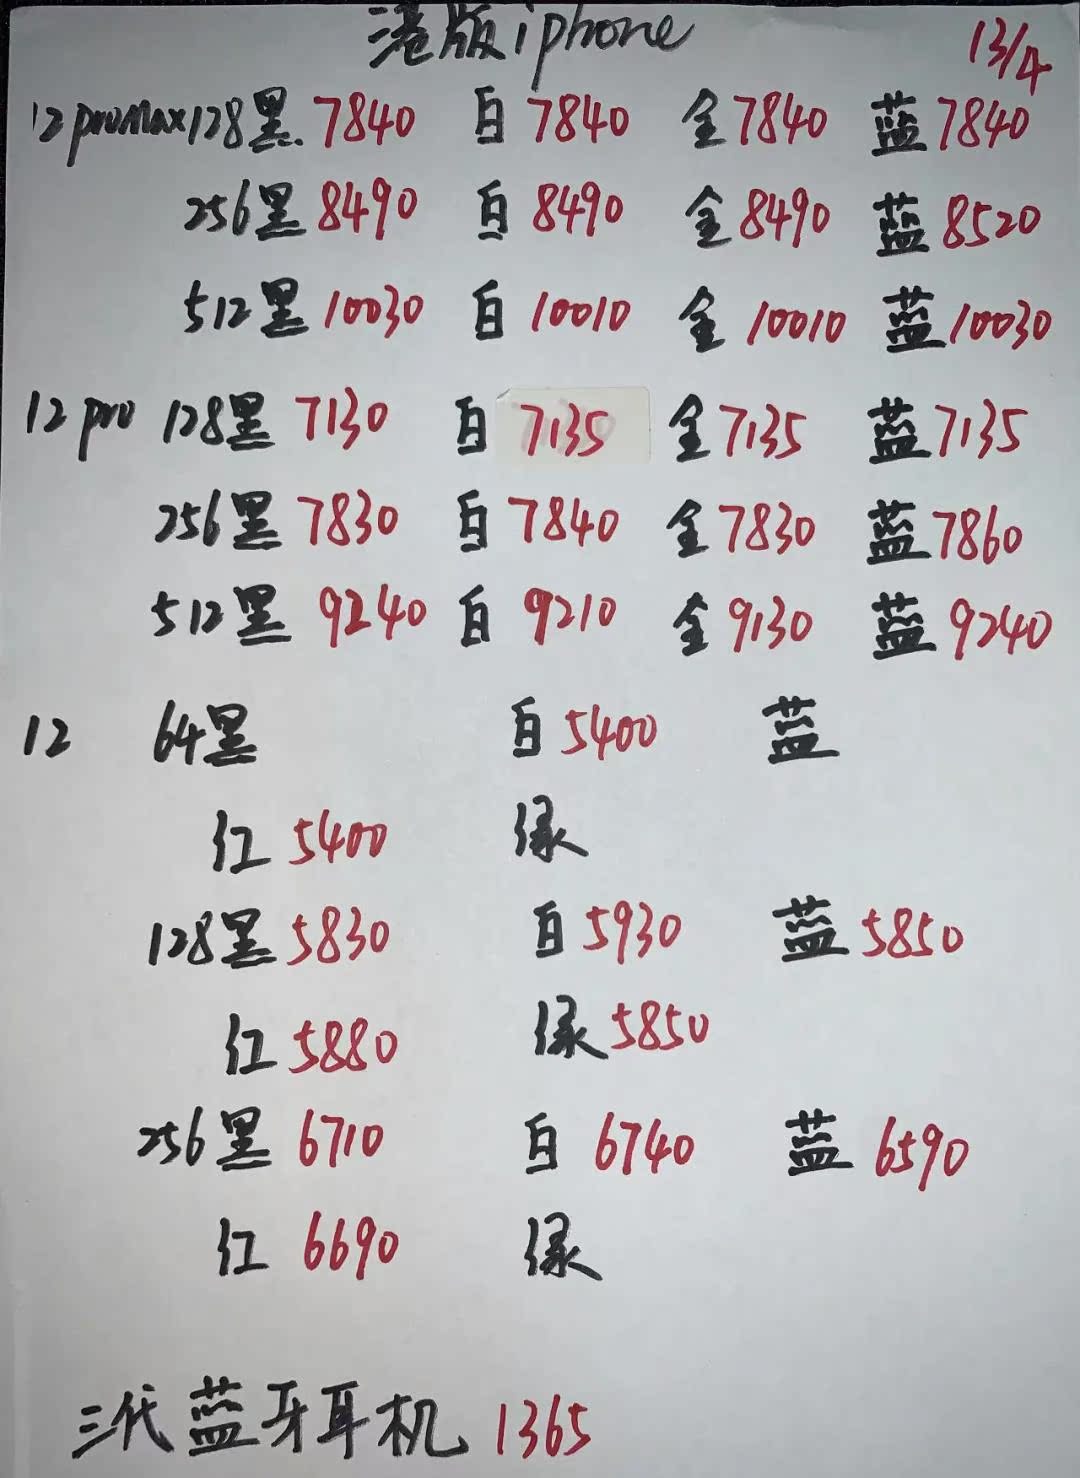 港版iphone 13/4
12promax128黑 7840 白 7840 金 7840 蓝 7840
256黑 8490 白 8490 金 8490 蓝 8520
512黑 10030 白 10010 金 10010 蓝 10030
12pro 128黑 7130 白 7135 金 7135 蓝 7135
256黑 7830 白 7840 金 7830 蓝 7860
512黑 9240 白 9210 金 9130 蓝 9240
12 64黑 白 5400 蓝
红 5400 绿
128黑 5830 白 5930 蓝 5850
红 5880 绿 5850
256黑 6710 白 6740 蓝 6590
红 6690 绿
三代蓝牙耳机 1365